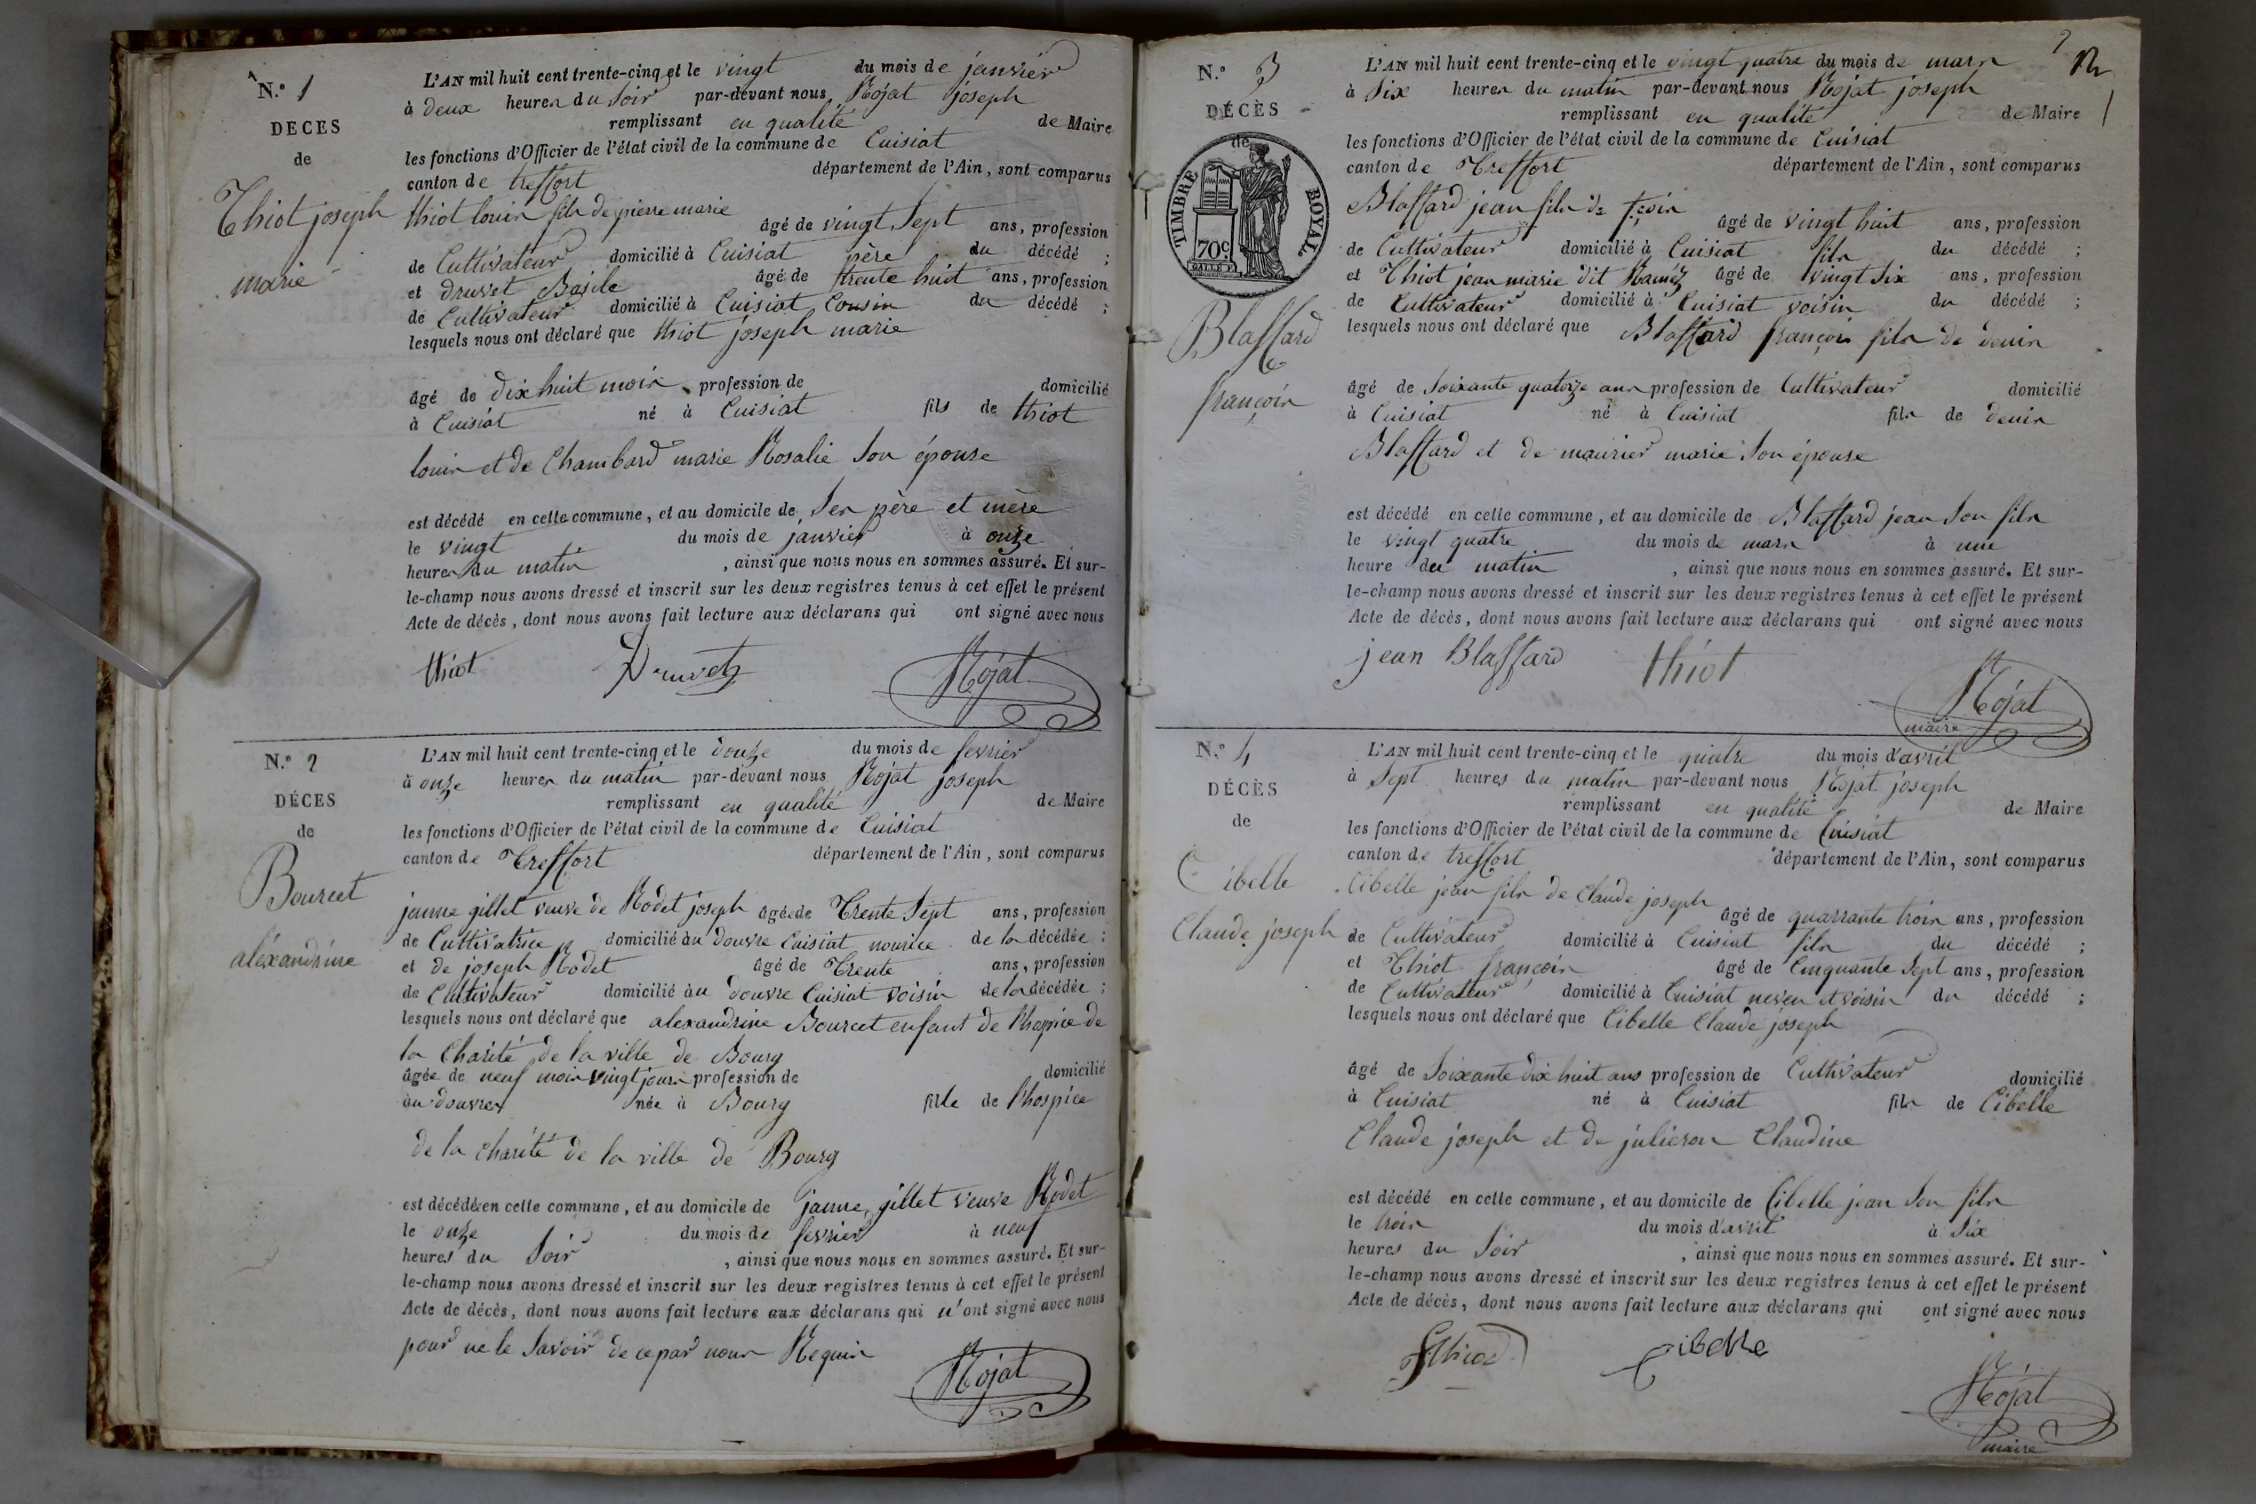 N.° 1
DECES
de
Thiot joseph
marie
L'AN mil huit cent trente-cinq et le vingt du mois de janvier
à deux heures du soir par-devant nous Rojat joseph
remplissant en qualité de Maire
les fonctions d'Officier de l'état civil de la commune de Cuisiat
canton de treffort département de l'Ain, sont comparus
thiot louis fils de pierre marie âgé de vingt sept ans, profession
de Cultivateur domicilié à Cuisiat père du décédé ;
et druvet Basile âgé de trente huit ans, profession
de Cultivateur domicilié à Cuisiat Cousin du décédé ;
lesquels nous ont déclaré que thiot joseph marie
âgé de dix huit mois profession de domicilié
à Cuisiat né à Cuisiat fils de thiot
louis et de Chambard marie Rosalie son épouse
est décédé en cette commune, et au domicile de ses père et mère
le vingt du mois de janvier à onze
heures du matin , ainsi que nous nous en sommes assuré. Et sur-
le-champ nous avons dressé et inscrit sur les deux registres tenus à cet effet le présent
Acte de décès, dont nous avons fait lecture aux déclarans qui ont signé avec nous
thiot Druvet Rojat
N.° 2
DÉCES
de
Bourcet
aléxandrine
L'AN mil huit cent trente-cinq et le douze du mois de fevrier
à onze heures du matin par-devant nous Rojat joseph
remplissant en qualité de Maire
les fonctions d'Officier de l'état civil de la commune de Cuisiat
canton de Treffort département de l'Ain, sont comparus
janne gillet veuve de Rodet joseph âgée de Trente sept ans, profession
de Cultivatrice domicilié au douvre Cuisiat nourice de la décédée ;
et de joseph Rodet âgé de Trente ans, profession
de Cultivateur domicilié au douvre Cuisiat voisin de la décédée ;
lesquels nous ont déclaré que alexandrine Bourcet enfant de l'hospice de
la Charité de la ville de Bourg
âgée de neuf mois vingt jours profession de domicilié
au douvres née à Bourg fille de l'hospice
de la charité de la ville de Bourg
est décédée en cette commune, et au domicile de janne gillet veuve Rodet
le onze du mois de fevrier à neuf
heures du soir , ainsi que nous nous en sommes assuré. Et sur-
le-champ nous avons dressé et inscrit sur les deux registres tenus à cet effet le présent
Acte de décès, dont nous avons fait lecture aux déclarans qui n'ont signé avec nous
pour ne le savoir de ce par nous Requis
Rojat
N.° 3
DÉCÈS
de
TIMBRE ROYAL
70c
Blaffard
françois
L'AN mil huit cent trente-cinq et le vingt quatre du mois de mars
à six heures du matin par-devant nous Rojat joseph
remplissant en qualité de Maire
les fonctions d'Officier de l'état civil de la commune de Cuisiat
canton de Treffort département de l'Ain, sont comparus
Blaffard jean fils de fçois âgé de vingt huit ans, profession
de Cultivateur domicilié à Cuisiat fils du décédé ;
et Thiot jean marie dit âgé de vingt six ans, profession
de Cultivateur domicilié à Cuisiat voisin du décédé ;
lesquels nous ont déclaré que Blaffard françois fils de denis
âgé de soixante quatorze ans profession de Cultivateur domicilié
à Cuisiat né à Cuisiat fils de denis
Blaffard et de maurier marie son épouse
est décédé en cette commune, et au domicile de Blaffard jean son fils
le vingt quatre du mois de mars à une
heure du matin , ainsi que nous nous en sommes assuré. Et sur-
le-champ nous avons dressé et inscrit sur les deux registres tenus à cet effet le présent
Acte de décès, dont nous avons fait lecture aux déclarans qui ont signé avec nous
jean Blaffard thiot Rojat
maire
N.° 4
DÉCÈS
de
Cibelle
Claude joseph
L'AN mil huit cent trente-cinq et le quatre du mois d'avril
à sept heures du matin par-devant nous Rojat joseph
remplissant en qualité de Maire
les fonctions d'Officier de l'état civil de la commune de Cuisiat
canton de treffort département de l'Ain, sont comparus
Cibelle jean fils de Claude joseph âgé de quarrante trois ans, profession
de Cultivateur domicilié à Cuisiat fils du décédé ;
et Thiot françois âgé de Cinquante sept ans, profession
de Cultivateur domicilié à Cuisiat neveu et voisin du décédé ;
lesquels nous ont déclaré que Cibelle Claude joseph
âgé de soixante dix huit ans profession de Cultivateur domicilié
à Cuisiat né à Cuisiat fils de Cibelle
Claude joseph et de julieron Claudine
est décédé en cette commune, et au domicile de Cibelle jean son fils
le trois du mois d'avril à six
heures du soir , ainsi que nous nous en sommes assuré. Et sur-
le-champ nous avons dressé et inscrit sur les deux registres tenus à cet effet le présent
Acte de décès, dont nous avons fait lecture aux déclarans qui ont signé avec nous
fthiot Cibelle Rojat
maire